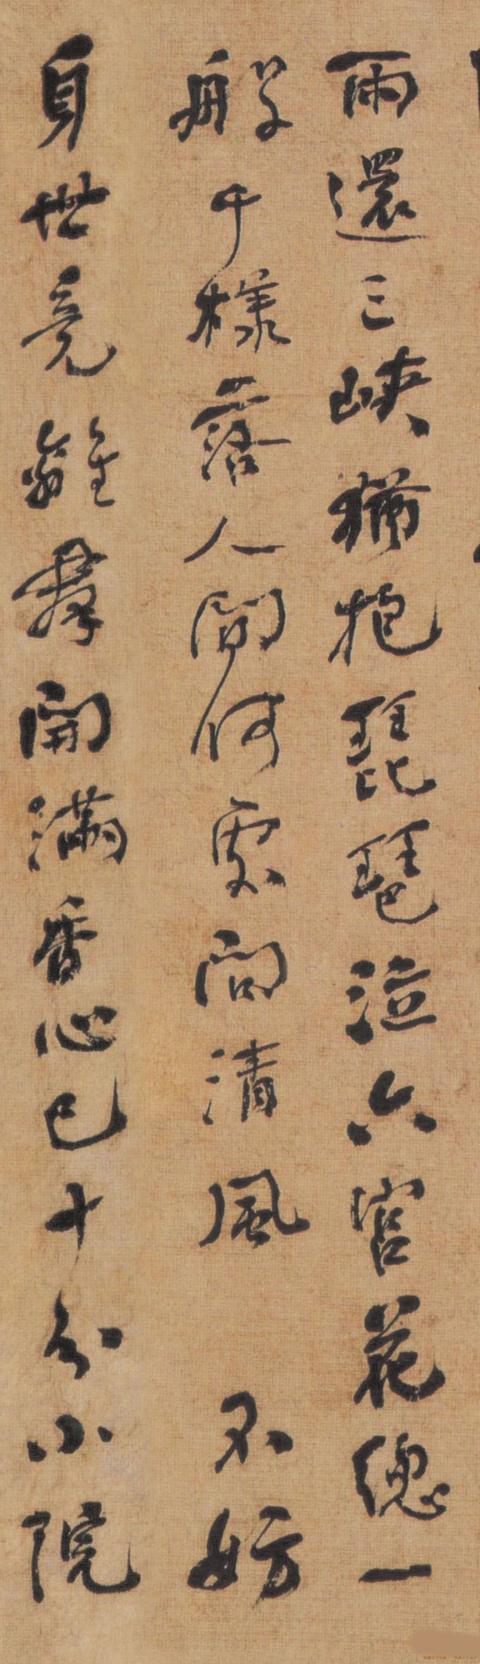 雨還三峽猶抱琵琶泣六宮花總一
般千樣落人間何處問清風　不妨
身世竟離羣開滿香心已十分小院